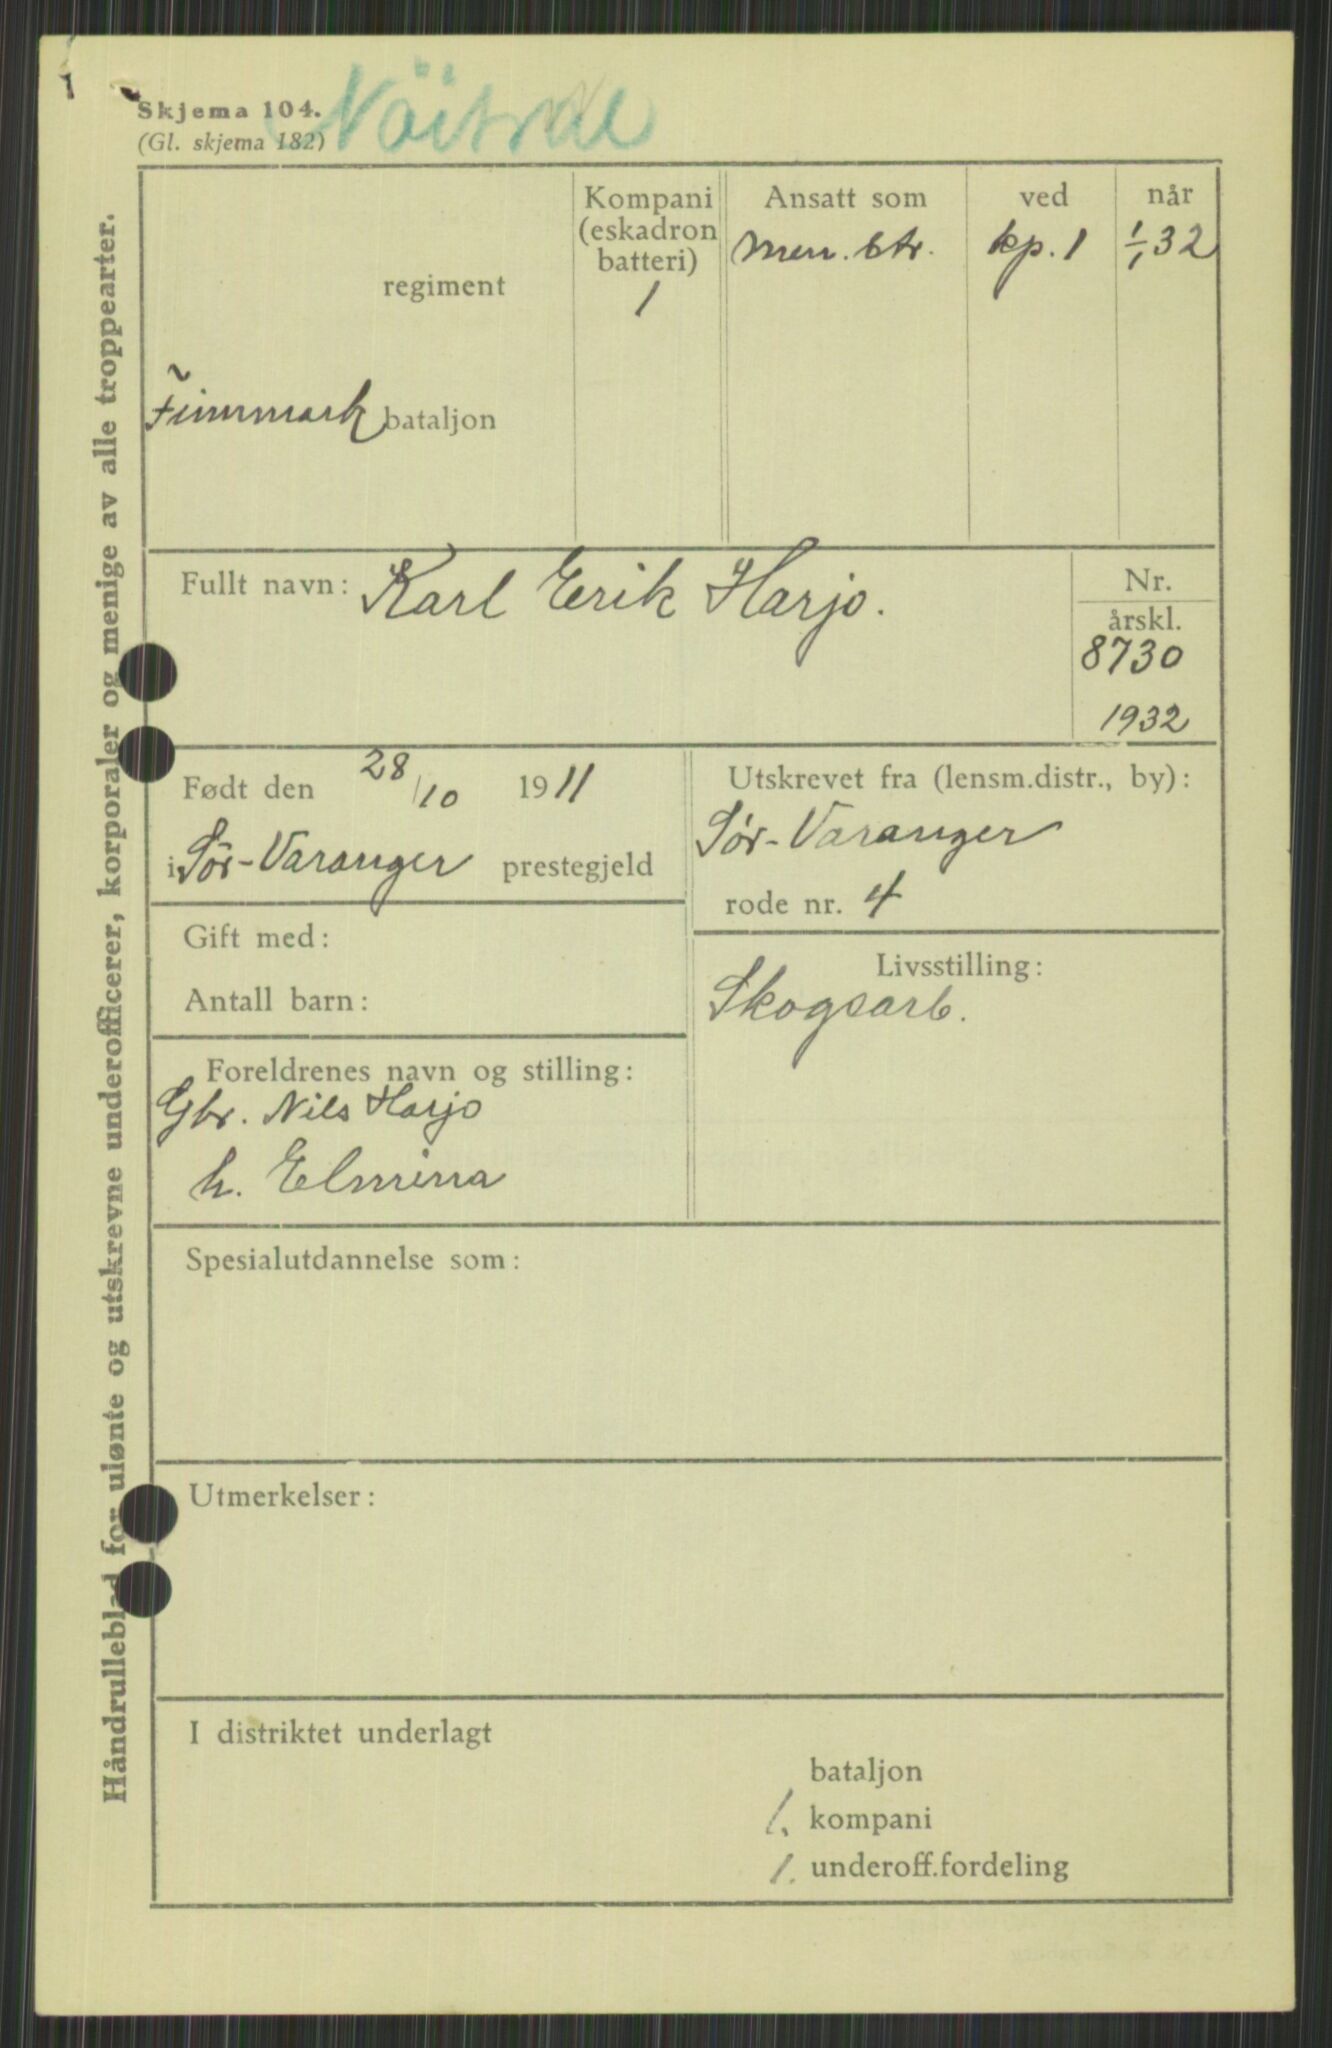 Skjema 104.
(Gl. skjema 182)
Håndrulleblad for ulønte og utskrevne underofficerer, korporaler og menige av alle troppearter.
regiment
Finnmark bataljon
Kompani
(eskadron
batteri)
1
Ansatt som
Men. str.
ved
kp. 1
når
1/1 32
Fullt navn: Karl Erik Harjo.
Nr.
årskl.
8730
1932
Født den 28/10 1911
i Sør-Varanger prestegjeld
Utskrevet fra (lensm.distr., by):
Sør-Varanger
rode nr. 4
Gift med:
Antall barn:
Livsstilling:
Skogsarb.
Foreldrenes navn og stilling:
Gbr. Nils Harjo
h. Elmina
Spesialutdannelse som:
Utmerkelser:
I distriktet underlagt
bataljon
1. kompani
1. underoff.fordeling